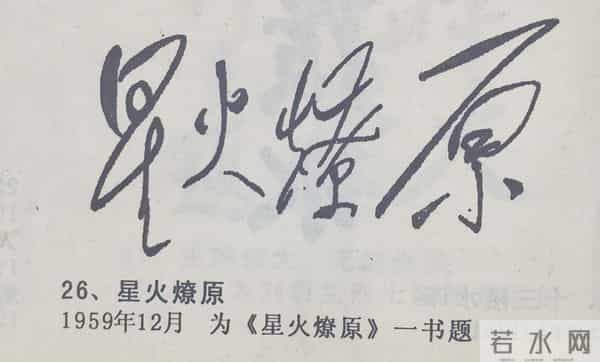 星火燎原
26、星火燎原
1959年12月 为《星火燎原》一书题
若水网